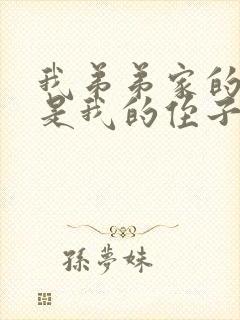 我弟弟家的
是我的侄子
孫夢妹